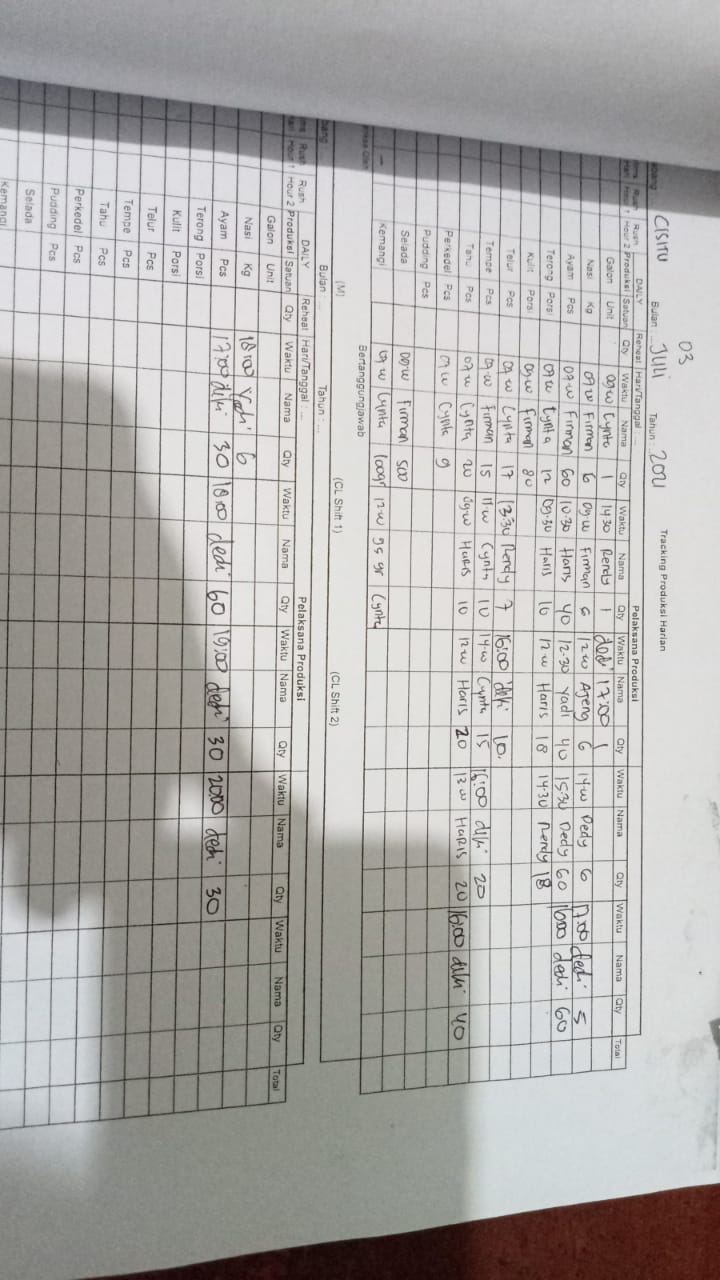 03
CISITU Bulan : JULI Tahun : 2021 Tracking Produksi Harian
DAILY Reheat Hari/Tanggal : ... Pelaksana Produksi
Rush Rush
Hour 1 Hour 2 Produksi Satuan Qty Waktu Nama Qty Waktu Nama Qty Waktu Nama Qty Waktu Nama Qty Waktu Nama Qty Total
Galon Unit 09.00 Cynta 1 14.30 Rendy 1 dedi 17:00 1
Nasi Kg 07.00 Firman 6 09.00 Firman 6 12.00 Ageng 6 14.00 Dedy 6 17:00 dedi 5
Ayam Pcs 07.00 Firman 60 10.30 Haris 40 12.30 Yadi 40 15.30 Dedy 60 16:00 dedi 60
Terong Porsi 07.00 Cynta 12 09.30 Haris 10 12.00 Haris 18 14.30 Rendy 18
Kulit Porsi 09.00 Firman 80
Telur Pcs 09.00 Cynta 17 13.30 Rendy 7 16:00 diki 10
Tempe Pcs 09.00 Firman 15 11.00 Cynta 10 14.00 Cynta 15 16:00 diki 20
Tahu Pcs 07.00 Cynta 20 09.00 Haris 10 12.00 Haris 20 13.00 HARIS 20 16:00 diki 40
Perkedel Pcs 07.00 Cynta 9
Pudding Pcs
Selada 00.00 Firman 500
Kemangi 09.00 Cynta 100gr 12.00 95 gr Cynta
Bertanggungjawab
(M) (CL Shift 1) (CL Shift 2)
Bulan : ... Tahun : ...
DAILY Reheat Hari/Tanggal : ... Pelaksana Produksi
Rush Rush
Hour 1 Hour 2 Produksi Satuan Qty Waktu Nama Qty Waktu Nama Qty Waktu Nama Qty Waktu Nama Qty Waktu Nama Qty Total
Galon Unit
Nasi Kg 18:00 Yadi 6
Ayam Pcs 17:00 diki 30 18:00 dedi 60 19:00 dedi 30 20:00 dedi 30
Terong Porsi
Kulit Porsi
Telur Pcs
Tempe Pcs
Tahu Pcs
Perkedel Pcs
Pudding Pcs
Selada
Kemangi